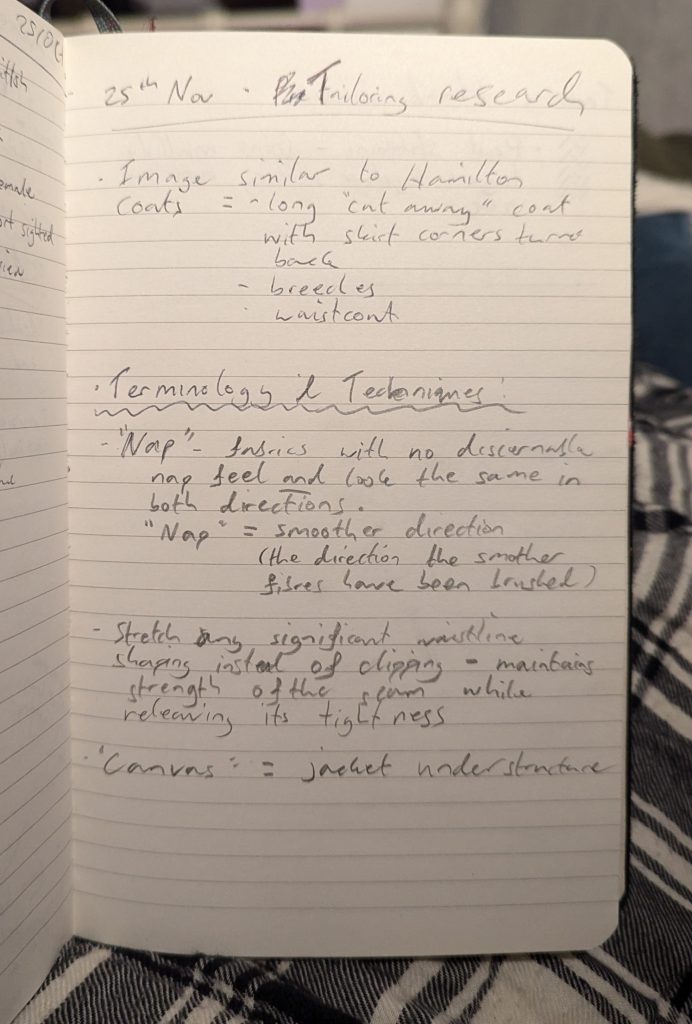 25th Nov . Tailoring research
. Image similar to Hamilton
coats = - long "cut away" coat
with skirt corners turned
back
- breeches
waistcoat
. Terminology & Techniques:
- "Nap" - fabrics with no discernable
nap feel and look the same in
both directions.
"Nap" = smoother direction
(the direction the smother
fibres have been brushed)
- Stretch any significant waistline
shaping instead of clipping - maintains
strength of the seam while
releaving its tightness
. "Canvas" = jacket understructure
25
emale
sighted